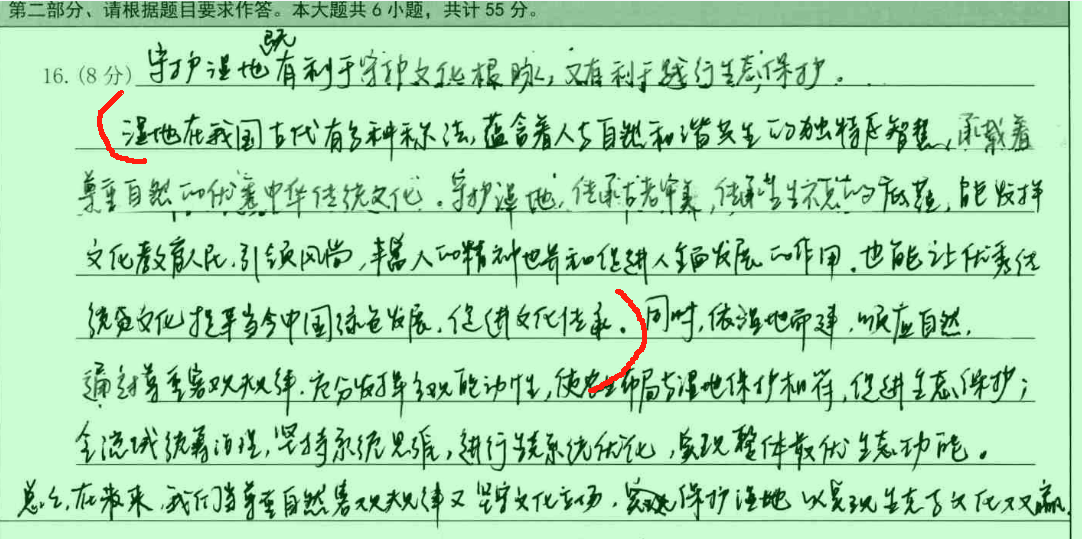 第二部分、请根据题目要求作答。本大题共 6 小题，共计 55 分。
16. (8 分) 守护湿地既有利于守护文化根脉，又有利于践行生态保护。
湿地在我国古代有多种称法，蕴含着人与自然和谐共生的独特智慧，承载着
尊重自然的优秀中华传统文化。守护湿地，传承古老审美，传承生生不息的底蕴，能发挥
文化教育人民、引领风尚，丰富人的精神世界和促进人全面发展的作用，也能让优秀传
统文化指导当今中国绿色发展，促进文化传承。同时，依湿地而建，顺应自然，
遵循尊重客观规律，充分发挥主观能动性，使布局与湿地保护相符，促进生态保护；
全流域统筹治理，坚持系统思维，进行系统优化，实现整体最优生态功能。
总之，在未来，我们当尊重自然客观规律又坚守文化立场，实现保护湿地以实现生态与文化双赢。